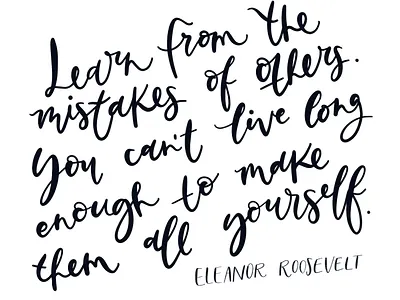 Learn from the
mistakes of others.
You can't live long
enough to make
them all yourself.
ELEANOR ROOSEVELT